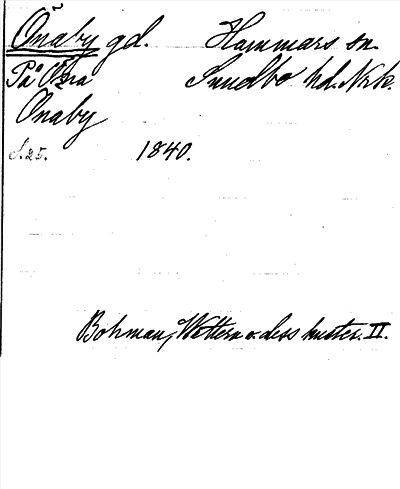 Önaby gd. Hammars sn.
På Östra Sundbo hd. Nrk.
Önaby
S. 25. 1840.
Bohman, Wettern o. dess kuster. II.